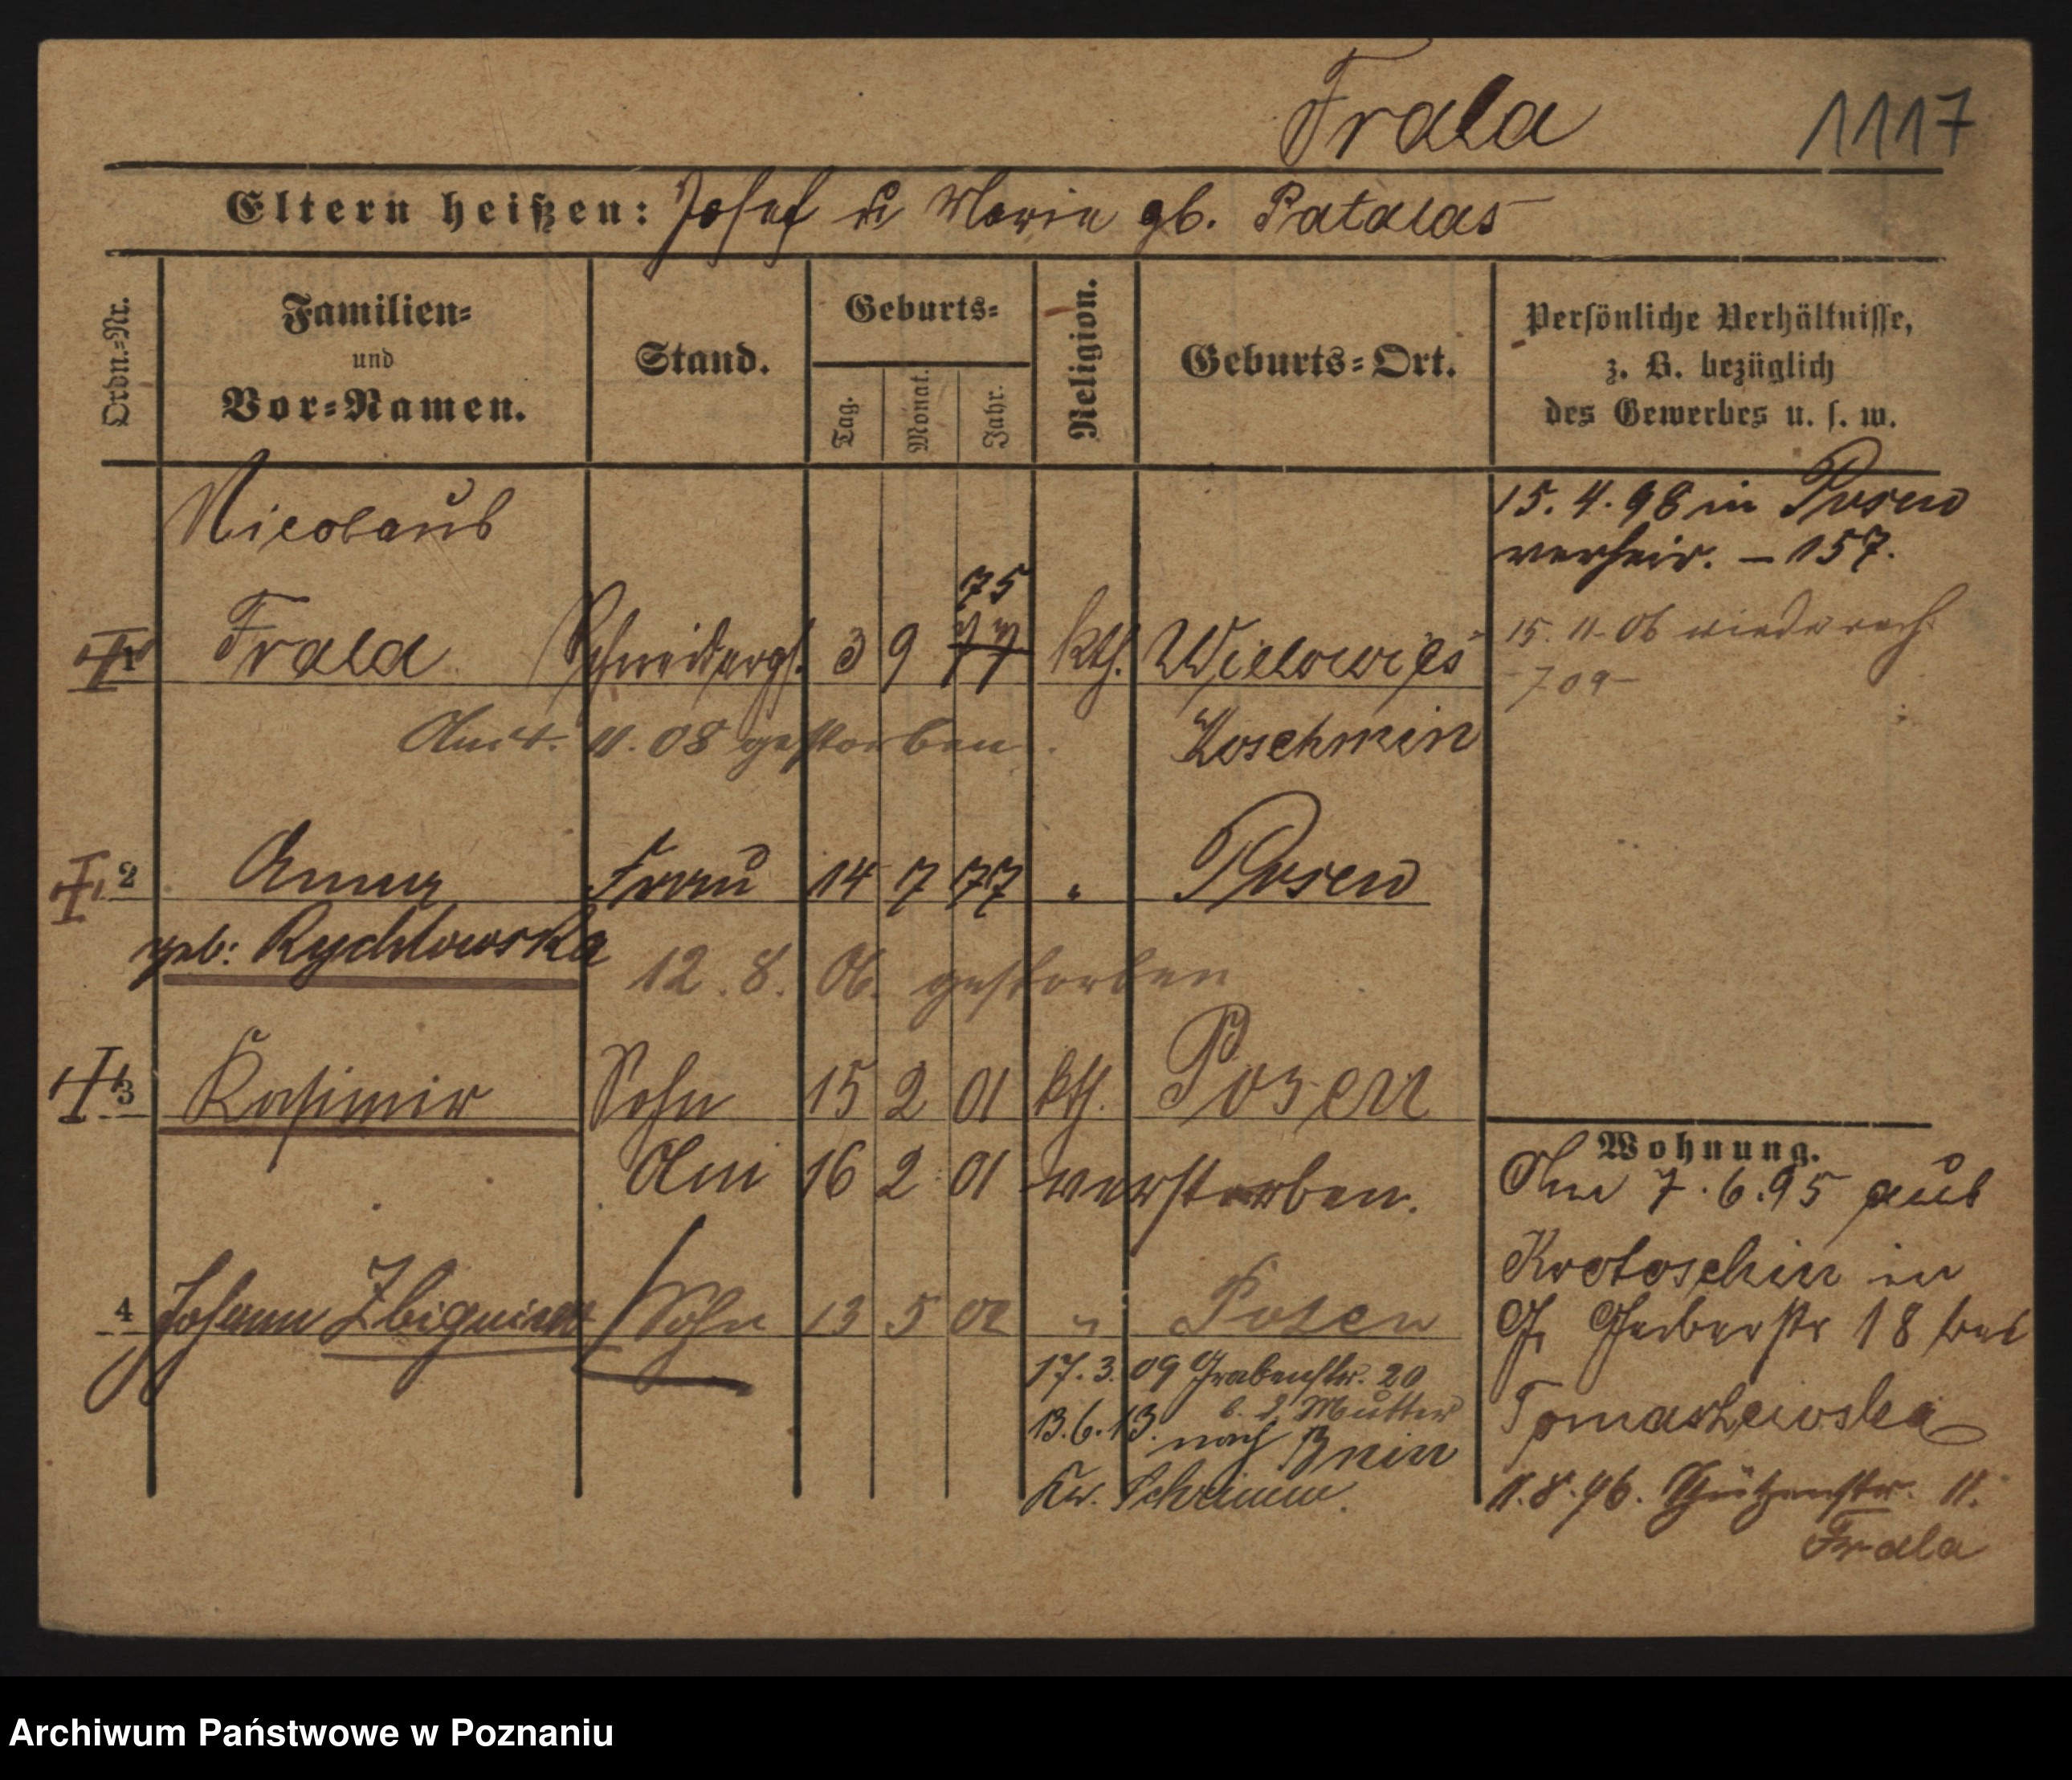 Frala
1117
Eltern heißen: Josef u Maria gb. Patalas
Ordn.-Nr.
Familien-
und
Vor-Namen.
Stand.
Geburts-
Tag.
Monat.
Jahr.
Religion.
Geburts-Ort.
Persönliche Verhältnisse,
z. B. bezüglich
des Gewerbes u. s. w.
Nicolaus
15. 4. 98 in Posen
verheir. – 157.
75
1 Frala Schneiderges. 3 9 77 kth. Wielowies
15. 11. 06
- 709 -
Am 4. 11. 08 gestorben.
Koschmin
2 Anna Frau 14 7 77 " Posen
geb: Rychlowska
12. 8. 06. gestorben
3 Kasimir Sohn 15 2 01 kth. Posen
Am 16 2 01 verstorben.
4 Johann Zbigniew Sohn 13 5 02 " Posen
17. 3. 09 Grabenstr. 20
b. d. Mutter
13. 6. 13. nach Bnin
Kr. Schrimm.
Wohnung.
Am 7. 6. 95 aus
Krotoschin in
Gr Gerberstr 18 bei
Tomaszewska
11. 8. 96. Schützenstr. 11.
Frala
Archiwum Państwowe w Poznaniu